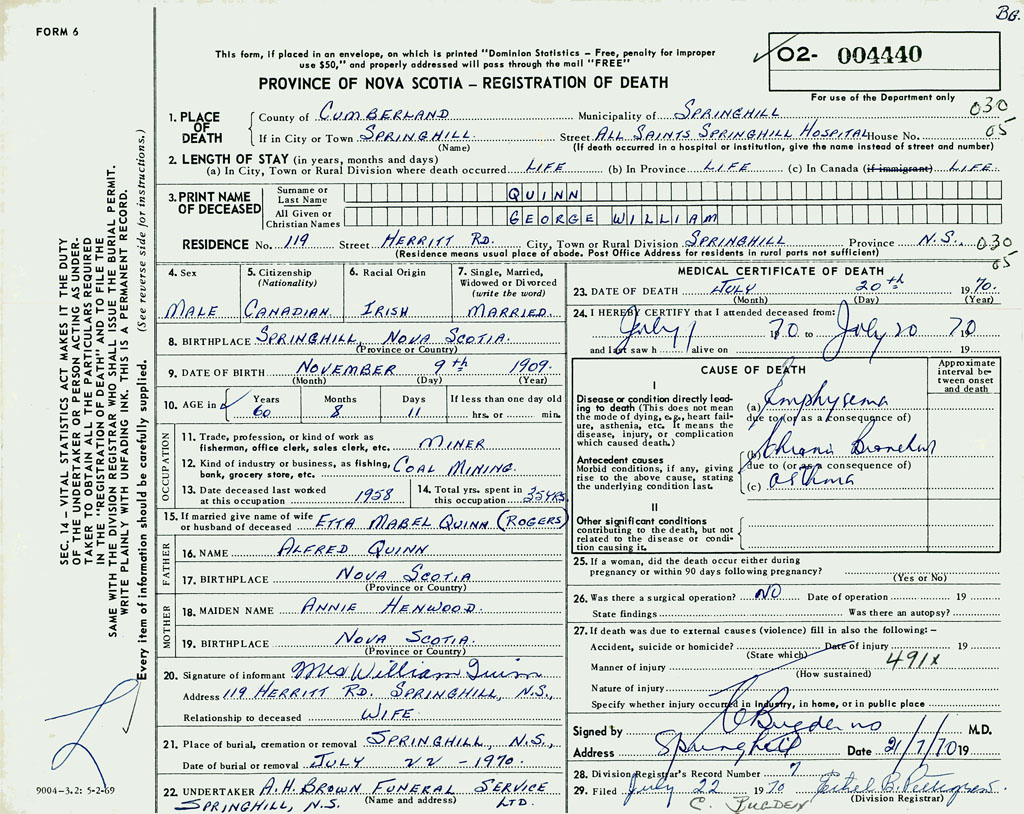 BG.
FORM 6
This form, if placed in an envelope, on which is printed "Dominion Statistics – Free, penalty for improper
use $50," and properly addressed will pass through the mail "FREE"
02- 004440
PROVINCE OF NOVA SCOTIA – REGISTRATION OF DEATH
For use of the Department only
1. PLACE OF DEATH County of CUMBERLAND Municipality of SPRINGHILL 030
If in City or Town SPRINGHILL Street ALL SAINTS SPRINGHILL HOSPITAL House No. 05
(Name) (If death occurred in a hospital or institution, give the name instead of street and number)
2. LENGTH OF STAY (in years, months and days)
(a) In City, Town or Rural Division where death occurred LIFE (b) In Province LIFE (c) In Canada (if immigrant) LIFE
3. PRINT NAME OF DECEASED Surname or Last Name QUINN
All Given or Christian Names GEORGE WILLIAM
RESIDENCE No. 119 Street HERRITT RD. City, Town or Rural Division SPRINGHILL Province N.S. 030
(Residence means usual place of abode. Post Office Address for residents in rural parts not sufficient) 05
4. Sex MALE
5. Citizenship (Nationality) CANADIAN
6. Racial Origin IRISH
7. Single, Married, Widowed or Divorced (write the word) MARRIED
8. BIRTHPLACE SPRINGHILL, NOVA SCOTIA.
(Province or Country)
9. DATE OF BIRTH NOVEMBER 9th 1909.
(Month) (Day) (Year)
10. AGE in Years 60 Months 8 Days 11 If less than one day old hrs. or min.
OCCUPATION
11. Trade, profession, or kind of work as fisherman, office clerk, sales clerk, etc. MINER
12. Kind of industry or business, as fishing, bank, grocery store, etc. COAL MINING.
13. Date deceased last worked at this occupation 1958
14. Total yrs. spent in this occupation 35 YRS
15. If married give name of wife or husband of deceased ETTA MABEL QUINN (ROGERS)
FATHER
16. NAME ALFRED QUINN
17. BIRTHPLACE NOVA SCOTIA
(Province or Country)
MOTHER
18. MAIDEN NAME ANNIE HENWOOD.
19. BIRTHPLACE NOVA SCOTIA.
(Province or Country)
20. Signature of informant Mrs William Quinn
Address 119 HERRITT RD. SPRINGHILL, N.S.,
Relationship to deceased WIFE
21. Place of burial, cremation or removal SPRINGHILL, N.S.,
Date of burial or removal JULY 22 - 1970.
22. UNDERTAKER A.H. BROWN FUNERAL SERVICE LTD.
SPRINGHILL, N.S. (Name and address)
MEDICAL CERTIFICATE OF DEATH
23. DATE OF DEATH JULY 20th 1970.
(Month) (Day) (Year)
24. I HEREBY CERTIFY that I attended deceased from:
July 1 1970 to July 20 1970
and last saw h alive on 19
CAUSE OF DEATH
Approximate interval between onset and death
I
Disease or condition directly leading to death (This does not mean the mode of dying, e.g., heart failure, asthenia, etc. It means the disease, injury, or complication which caused death.)
(a) Emphysema
due to (or as a consequence of)
Antecedent causes
Morbid conditions, if any, giving rise to the above cause, stating the underlying condition last.
(b) Chronic Bronchitis
due to (or as a consequence of)
(c) asthma
II
Other significant conditions
contributing to the death, but not related to the disease or condition causing it.
25. If a woman, did the death occur either during
pregnancy or within 90 days following pregnancy?
(Yes or No)
26. Was there a surgical operation? NO Date of operation 19
State findings Was there an autopsy?
27. If death was due to external causes (violence) fill in also the following: –
Accident, suicide or homicide? Date of injury 19
(State which) 491X
Manner of injury
(How sustained)
Nature of injury
Specify whether injury occurred in industry, in home, or in public place
Signed by C Bugden M.D.
Address Springhill Date 21/7/70 19
28. Division Registrar's Record Number 7
29. Filed July 22 1970 Ethel B.
C. BUGDEN (Division Registrar)
SEC. 14 – VITAL STATISTICS ACT MAKES IT THE DUTY
OF THE UNDERTAKER OR PERSON ACTING AS UNDER-
TAKER TO OBTAIN ALL THE PARTICULARS REQUIRED
IN THE "REGISTRATION OF DEATH" AND TO FILE THE
SAME WITH THE DIVISION REGISTRAR WHO SHALL ISSUE THE BURIAL PERMIT.
WRITE PLAINLY WITH UNFADING INK. THIS IS A PERMANENT RECORD.
Every item of information should be carefully supplied. (See reverse side for instructions.)
9004-3.2: 5-2-69